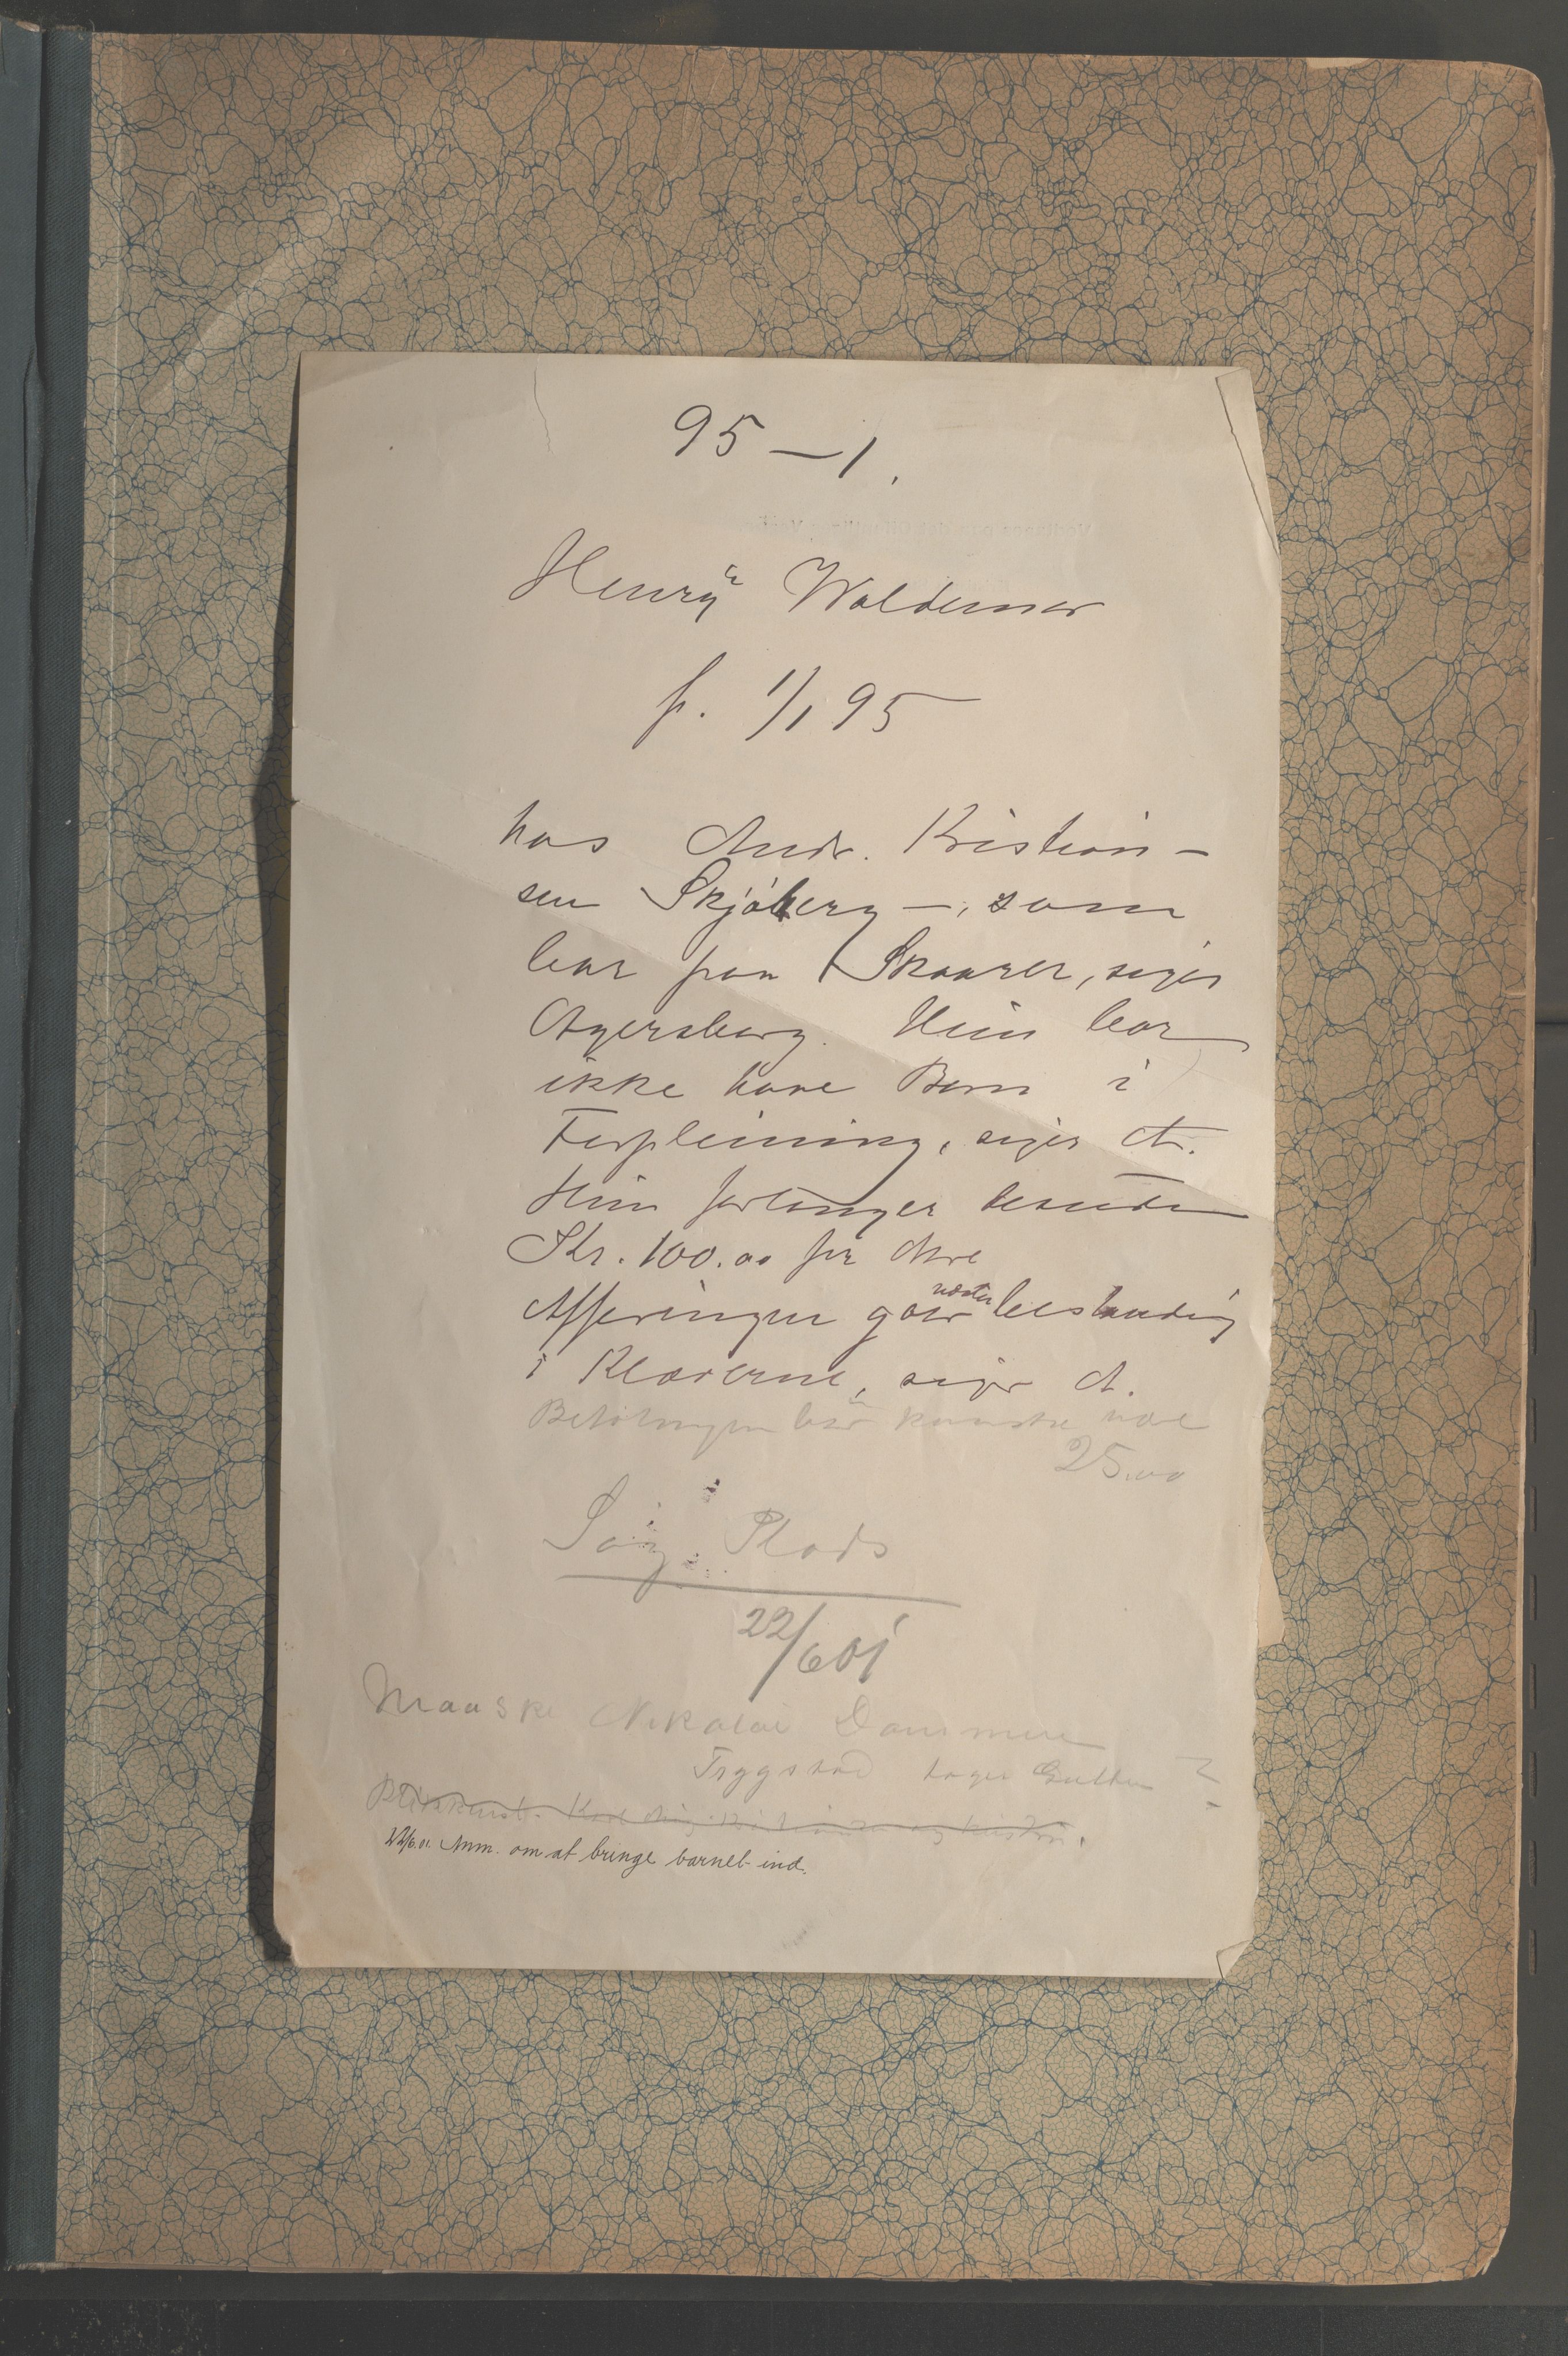 95 – 1.
Henry Waldemar
f. 1/1 95
hos Andr. Kristian-
sen Skjøberg –, som
bor paa Skaarer, siger
Agersborg. Hun bør
ikke have Barn i
Forpleining, siger A.
Hun forlanger desuden
Kr. 100.00 for Aaret
Afføringen gaar næsten bestandig
i Klæderne, siger A.
Betalingen bør kanske være
25.00
Søg Plads
22/6 01
Maaske Nikolai Dammen
Tryggstad tager Gutten?
22/6.01. Anm. om at bringe barnet ind.